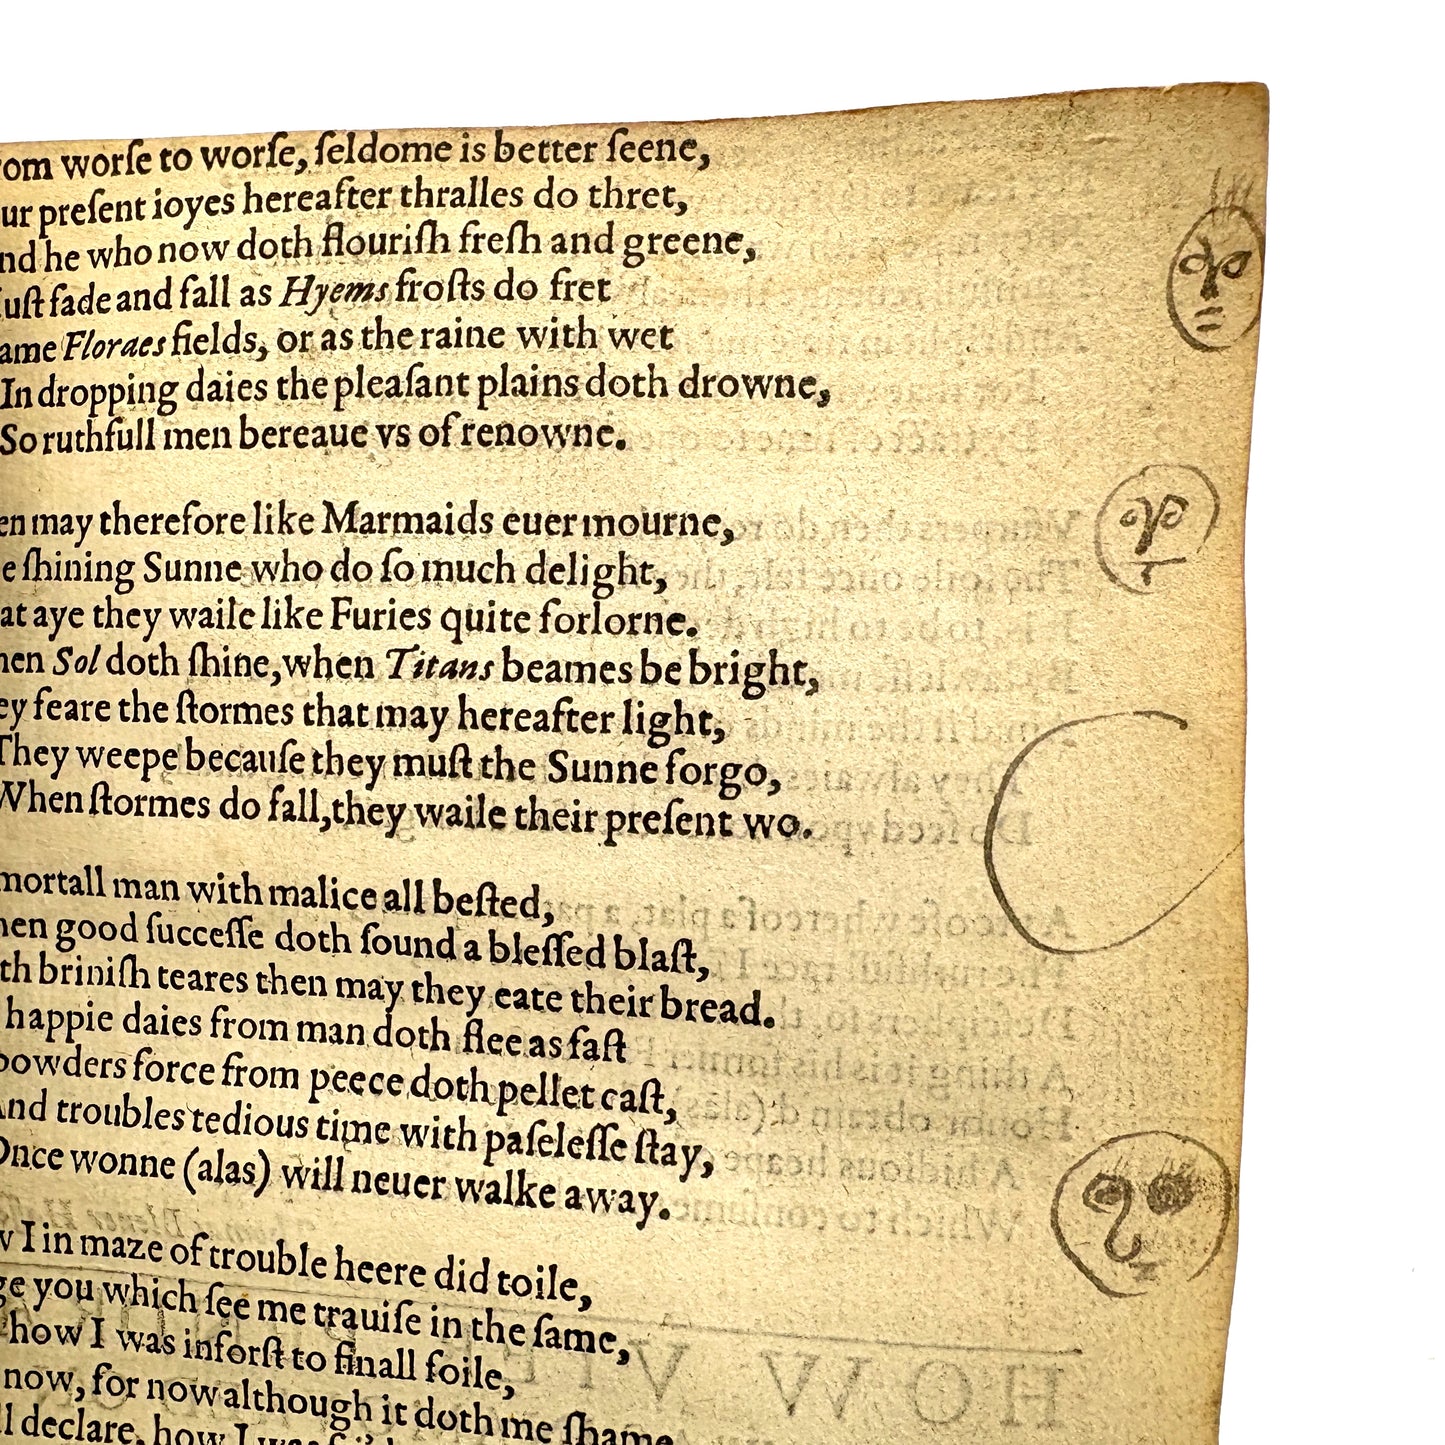 rom worſe to worſe, ſeldome is better ſeene,
ur preſent ioyes hereafter thralles do thret,
nd he who now doth flouriſh freſh and greene,
uſt fade and fall as Hyems froſts do fret
ame Floraes fields, or as the raine with wet
In dropping daies the pleaſant plains doth drowne,
So ruthfull men bereaue vs of renowne.
en may therefore like Marmaids euer mourne,
e ſhining Sunne who do ſo much delight,
at aye they waile like Furies quite forlorne.
hen Sol doth ſhine, when Titans beames be bright,
ey feare the ſtormes that may hereafter light,
They weepe becauſe they muſt the Sunne forgo,
When ſtormes do fall, they waile their preſent wo.
mortall man with malice all beſted,
hen good ſucceſſe doth ſound a bleſſed blaſt,
th briniſh teares then may they eate their bread.
happie daies from man doth flee as faſt
powders force from peece doth pellet caſt,
And troubles tedious time with paſeleſſe ſtay,
Once wonne (alas) will neuer walke away.
w I in maze of trouble heere did toile,
ge you which ſee me trauiſe in the ſame,
how I was inforſt to finall foile,
now, for now although it doth me ſhame
ll declare, how I was